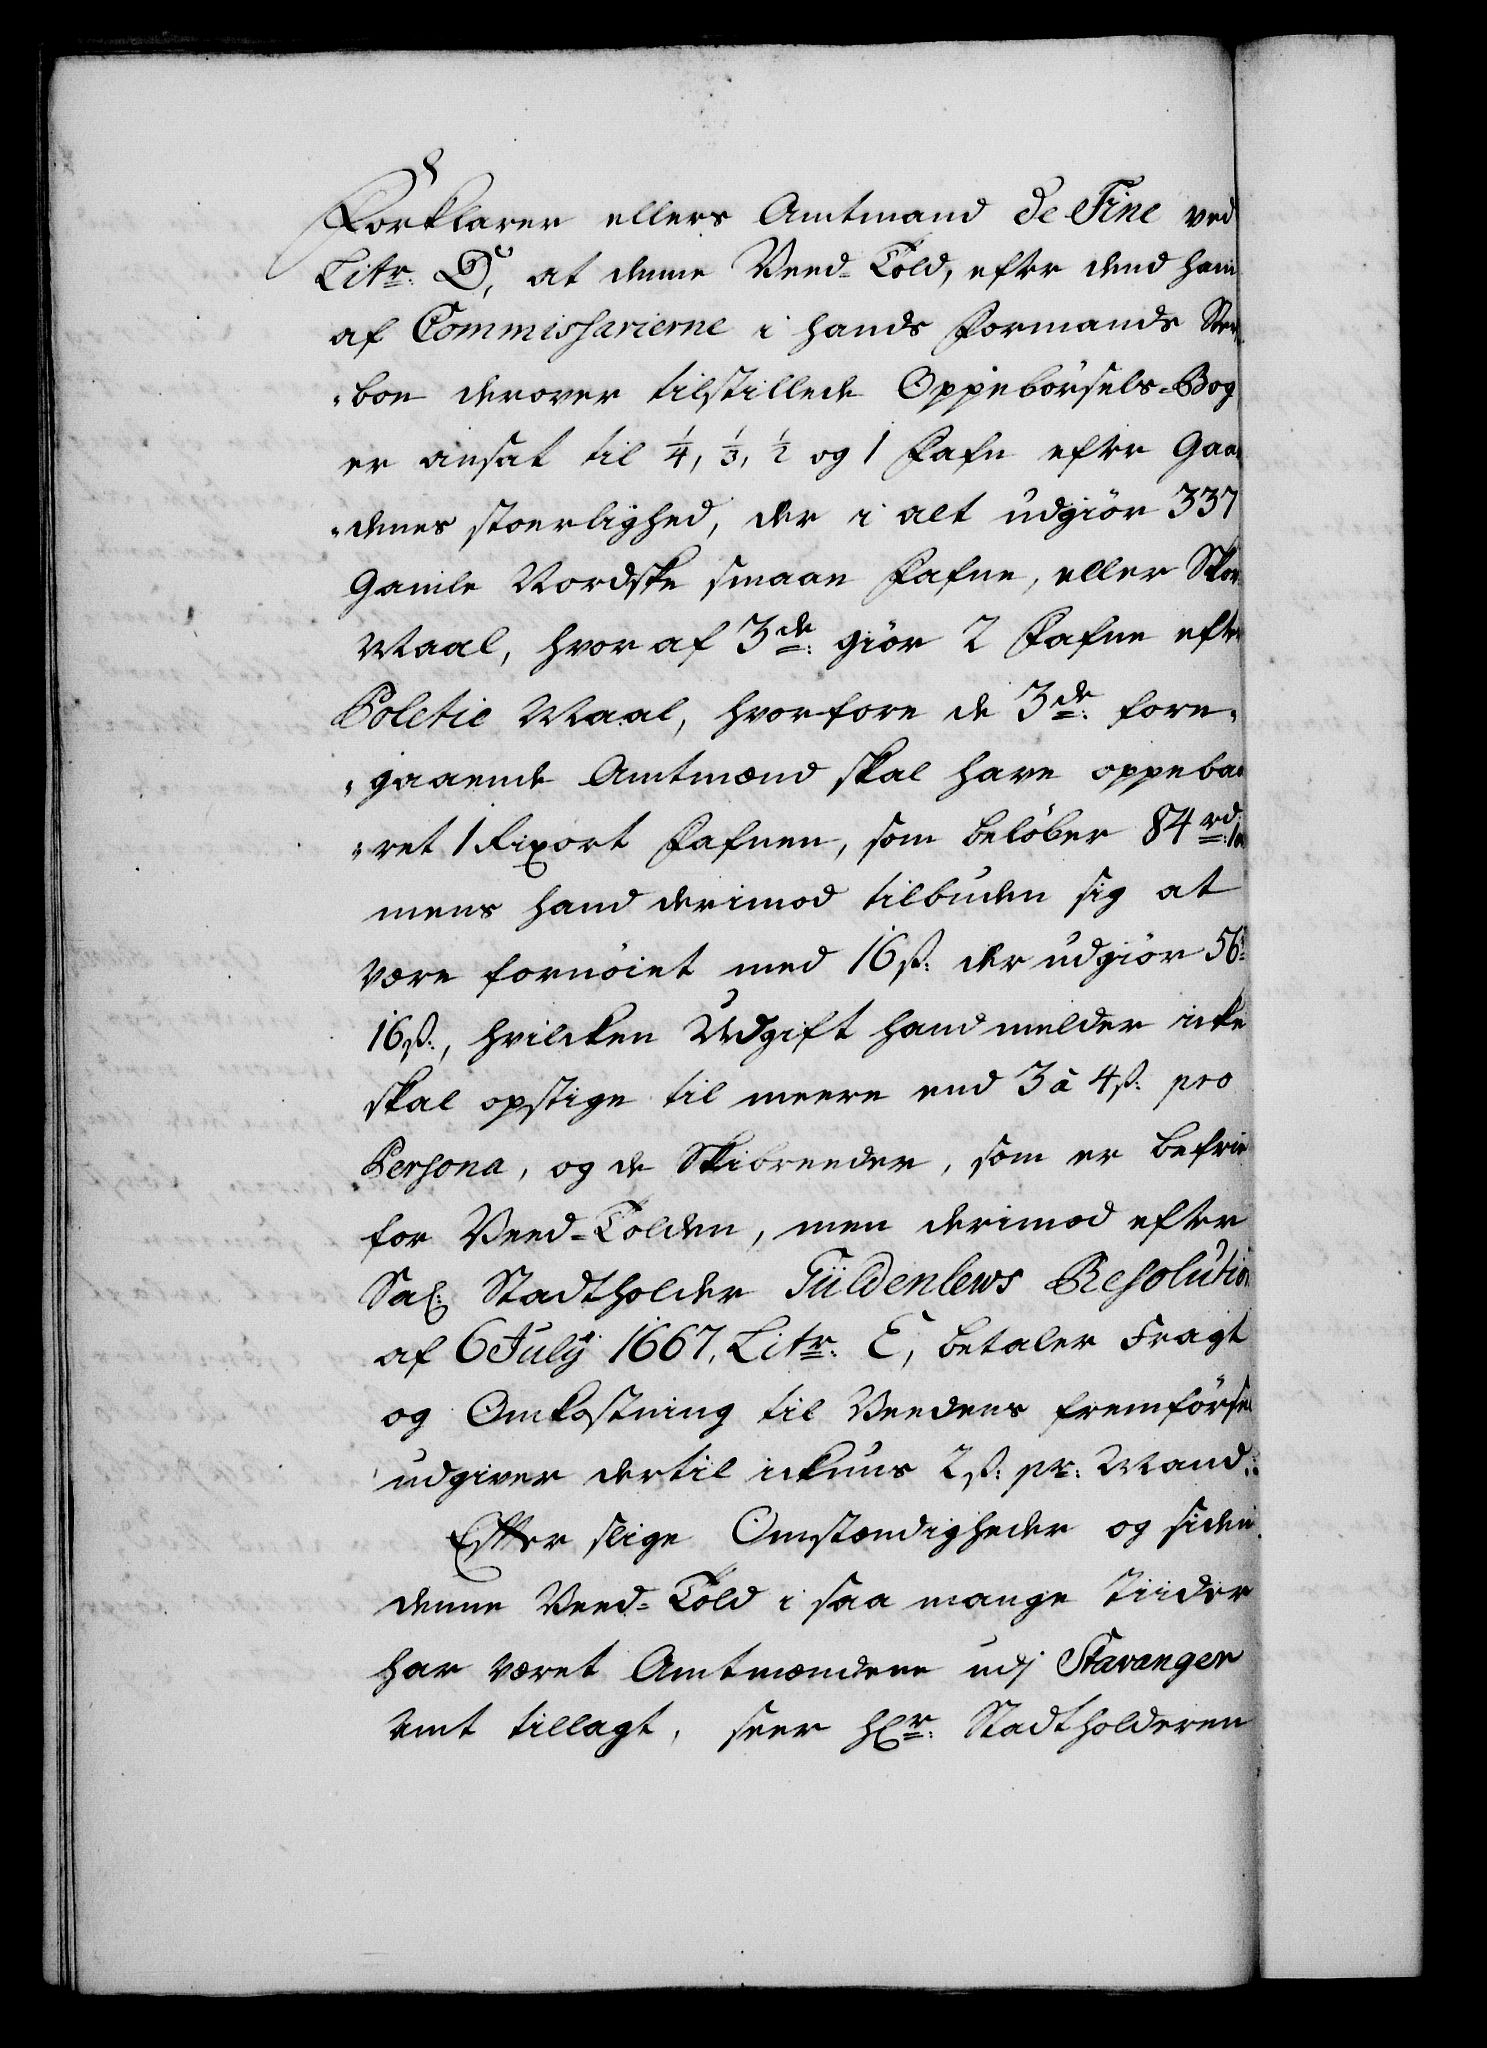 Forklarer ellers Amtmand de Fine ved
Litr: D, at denne Veed-Told, efter dend ham
af Commissarierne i hands Formands Ster,
"boe derover tilstillede Oppebörsels-Bog
er ansat til 1/4, 1/3, 1/2 og 1 Fafn efter Gaar
"denes stoerlighed, der i alt udgiör 337
Gamle Nordske smaae Fafne, eller Skov
Maal, hvor af 3de: giör 2 Fafne efter
Poletie Maal, hvorfore de 3de: fore,
"gaaende Amtmænd skal have oppebaa
"ret 1 Rixort Fafnen, som beløber 84 rd:
mens hand derimod tilbuden sig at
være fornöiet med 16 ß: der udgiör 56:
16 ß:, hvilcken Udgift hand melder icke
skal opstige til meere end 3 à 4 ß: pro
Persona, og de Skibreeder, som er befrie
for Veed-Tolden, men derimod efter
Sal: Stadtholder Güldenlews Resolution
af 6 July 1667, Litr: E, betaler Fragt
og Omkostning til Veedens fremförsel
udgiver dertil ickuns 2 ß: pr: Mand.
Efter slige Omstændigheder og siden
denne Veed-Told i saa mange Tiider
har været Amtmændene udj Stavanger
Amt tillagt, seer Hr: Stadtholderen